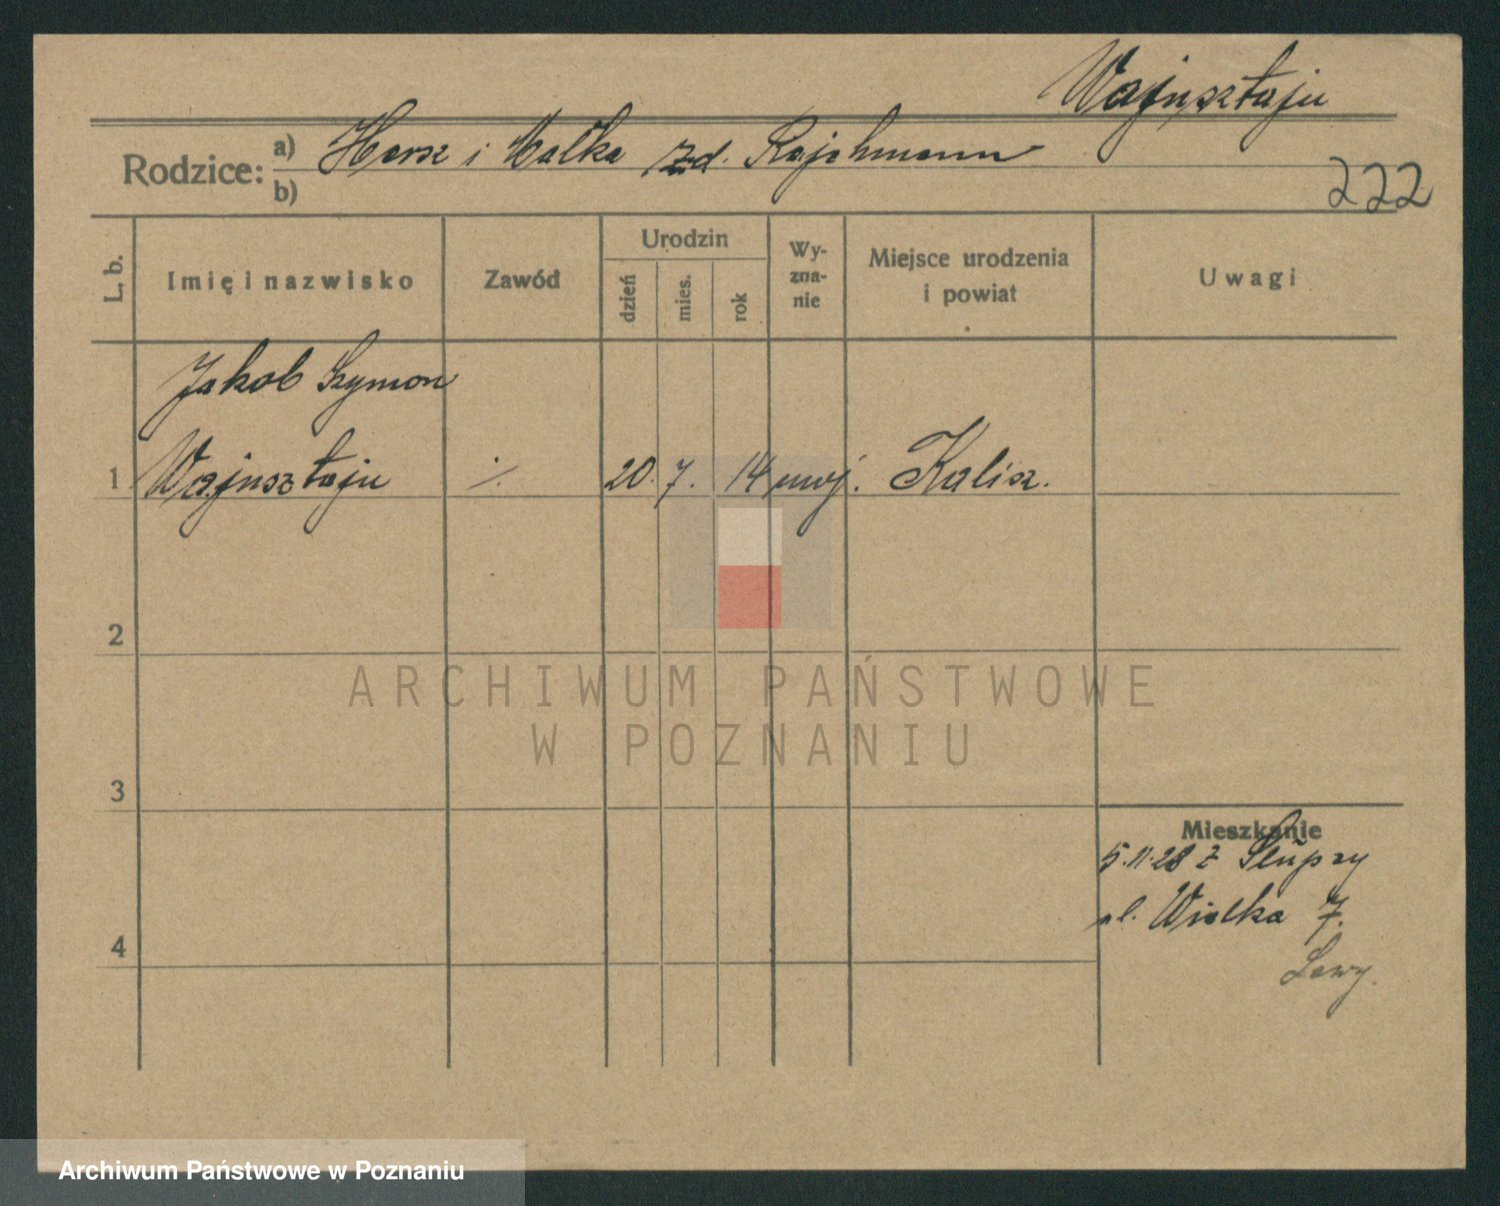 Wajnsztajn
Rodzice: a) Hersz i Małka z d. Rajchmann
b)
222
L. b.
Imię i nazwisko
Zawód
Urodzin
dzień
mies.
rok
Wy-
zna-
nie
Miejsce urodzenia
i powiat
Uwagi
Jakob Szymon
1 Wajnsztajn ./. 20. 7. 14 mojż. Kalisz.
2
3
4
Mieszkanie
5.11.28 z Słupcy
ul. Wielka 7.
ARCHIWUM PAŃSTWOWE
W POZNANIU
Archiwum Państwowe w Poznaniu